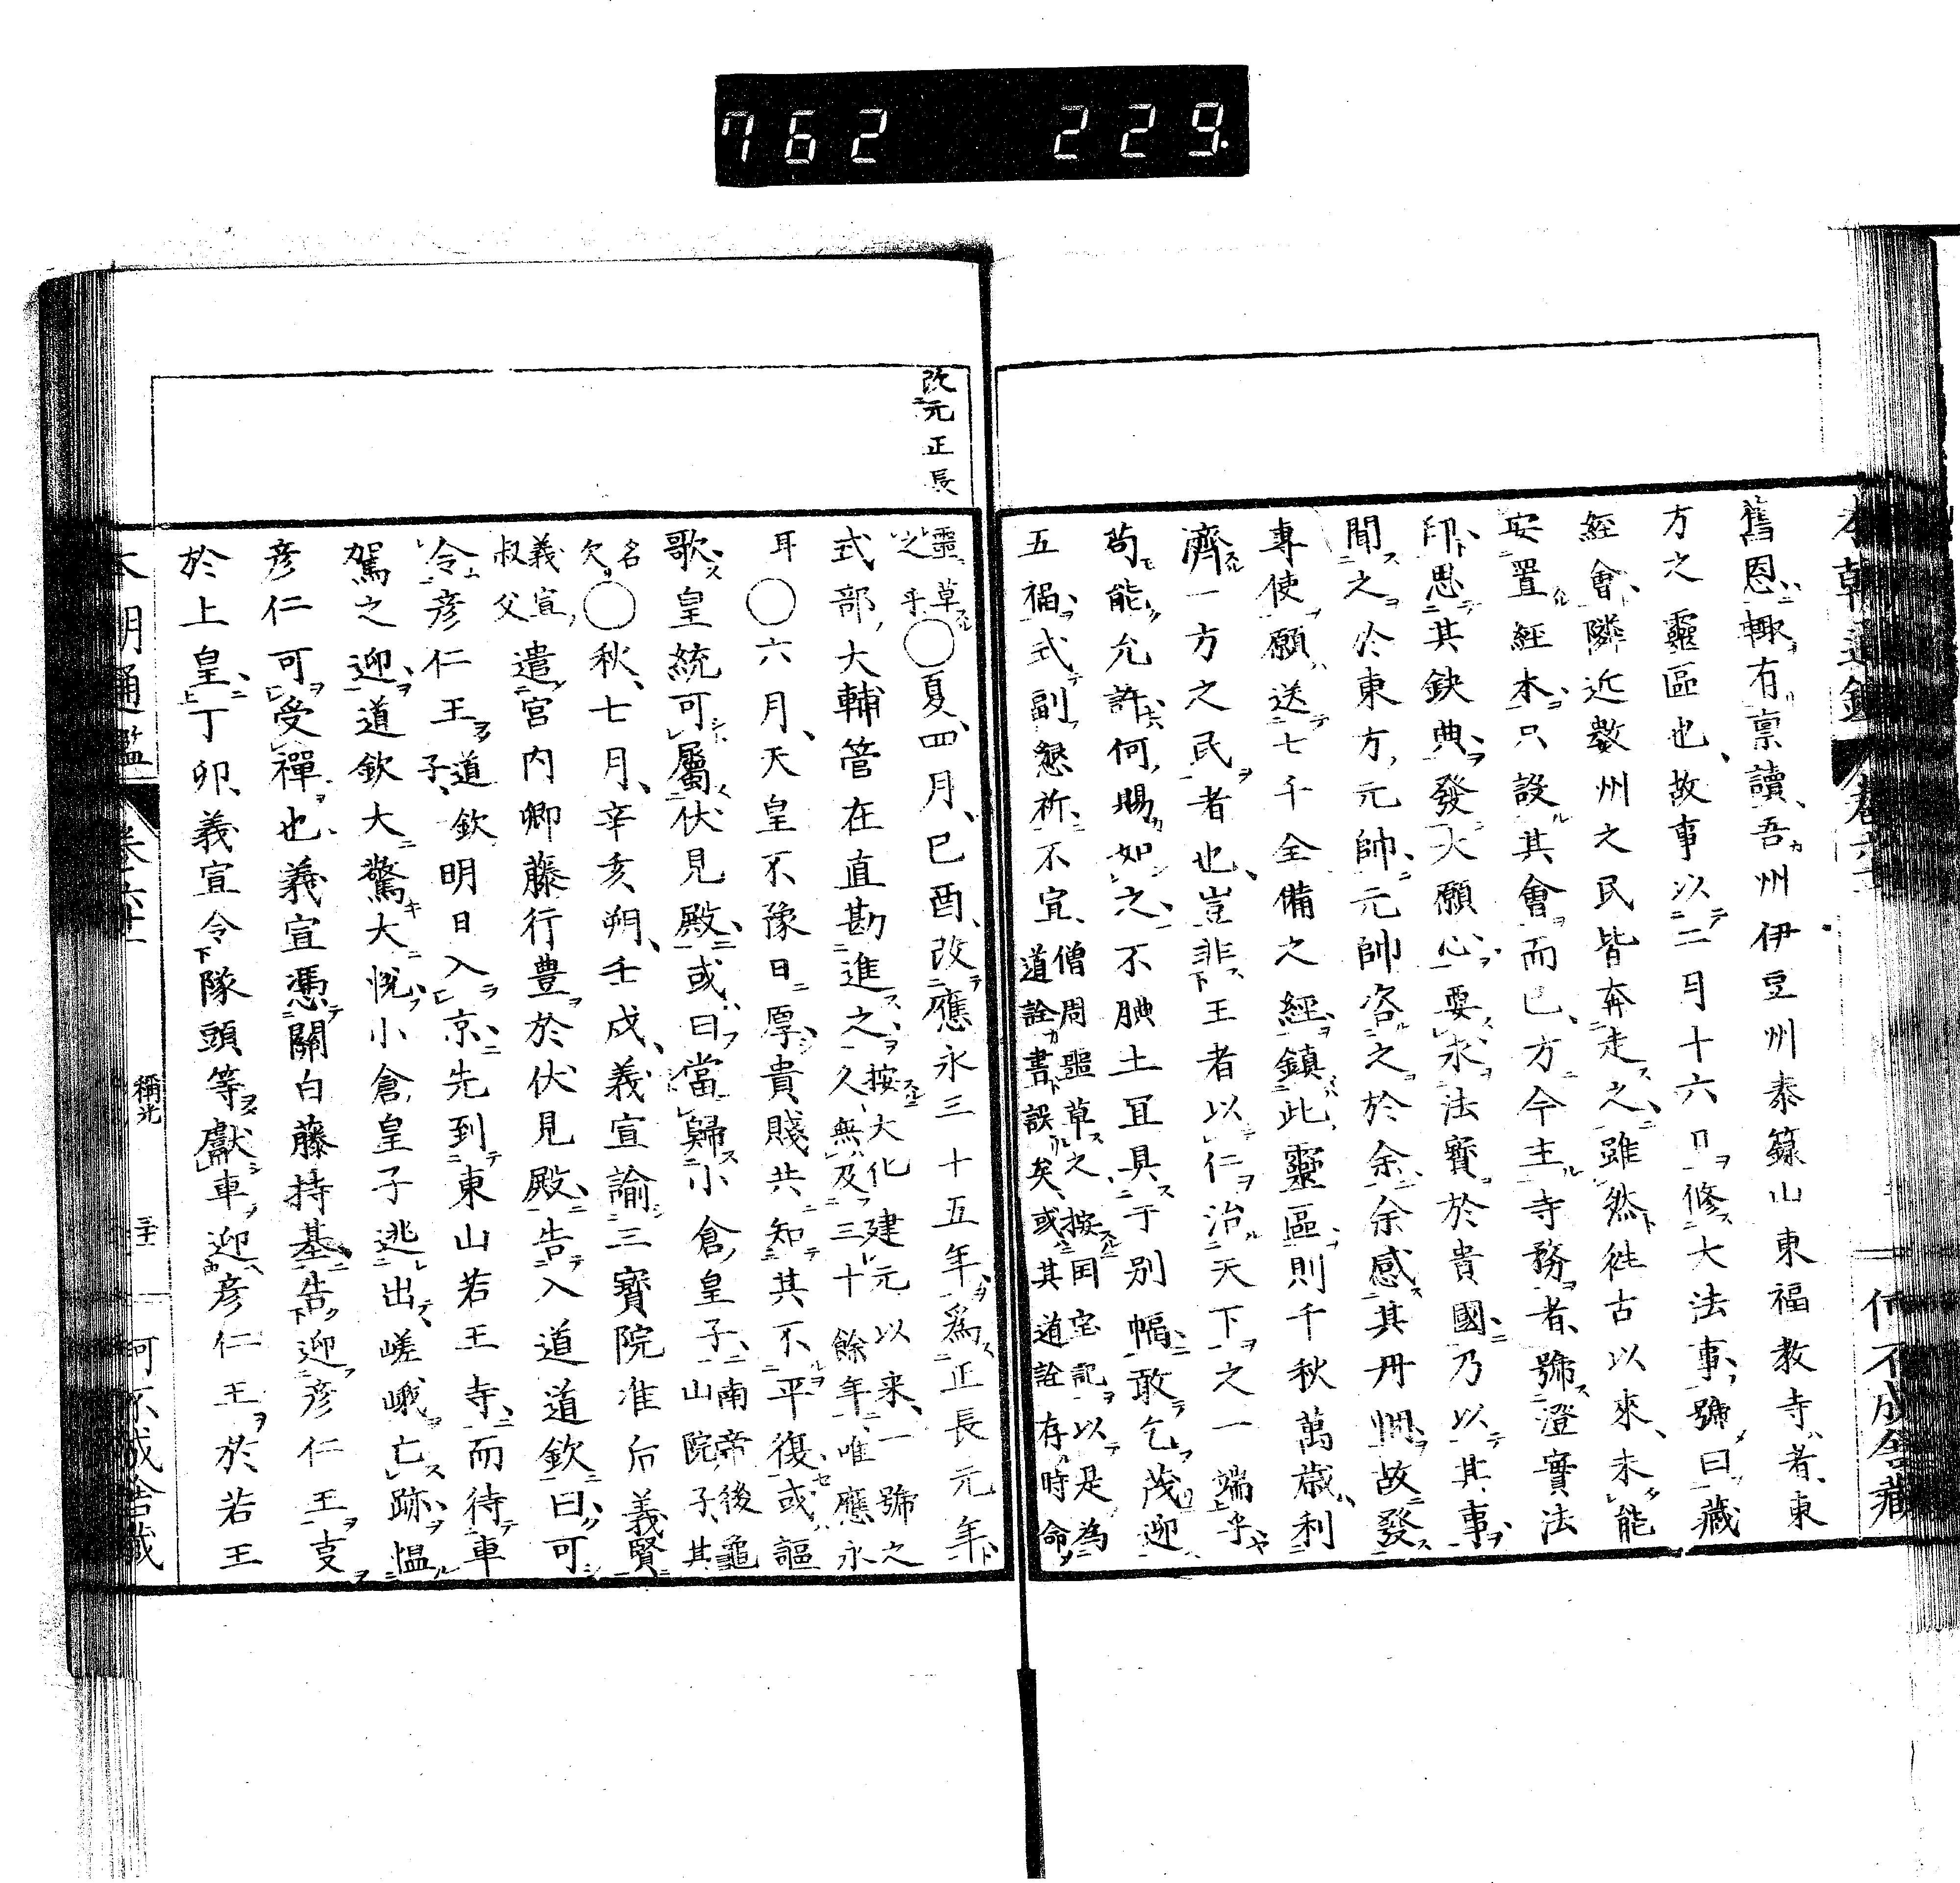 762 229
本朝通鑑 卷六十一 何不成舍藏
舊恩輙有禀讀吾州伊豆州泰籙山東福教寺者東
方之靈區也故事以二月十六日修大法事號曰藏
經會隣近數州之民皆奔走之雖然徃古以來未能
安置經本只設其會而已方今主寺務者號澄實法
印思其缺典發大願心要求法寳於貴國乃以其事
聞之於東方元帥元帥咨之於余余感其丹悃故發
專使願送七千全備之經鎮此靈區則千秋萬歳利
濟一方之民者也豈非王者以仁治天下之一端乎
苟能允許何賜如之不腆土冝具于別幅敢乞茂迎
五福式副懇祈不宣僧周噩草之按臥雲記以是為
道詮書誤矣或其道詮存時命
改元正長
噩草
之乎◯夏四月己酉改應永三十五年爲正長元年
式部大輔菅在直勘進之按大化建元以来一號之
久無及三十餘年唯應永
耳◯六月天皇不豫日厚貴賤共知其不平復或謳
歌皇統可屬伏見殿或曰當歸小倉皇子南帝後龜
山院子其
名
欠◯秋七月辛亥朔壬戍義宣諭三寳院准后義賢
義宣
叔父遣宮内卿藤行豊於伏見殿告入道道欽曰可
令彦仁王道欽
子明日入京先到東山若王寺而待車
駕之迎道欽大驚大悅小倉皇子逃出嵯峨亡跡愠
彦仁可受禪也義宣憑關白藤持基告迎彦仁王支
於上皇丁卯義宣令隊頭等獻車迎彦仁王於若王
本朝通鑑 卷六十一 稱光 三十 何不成舍藏